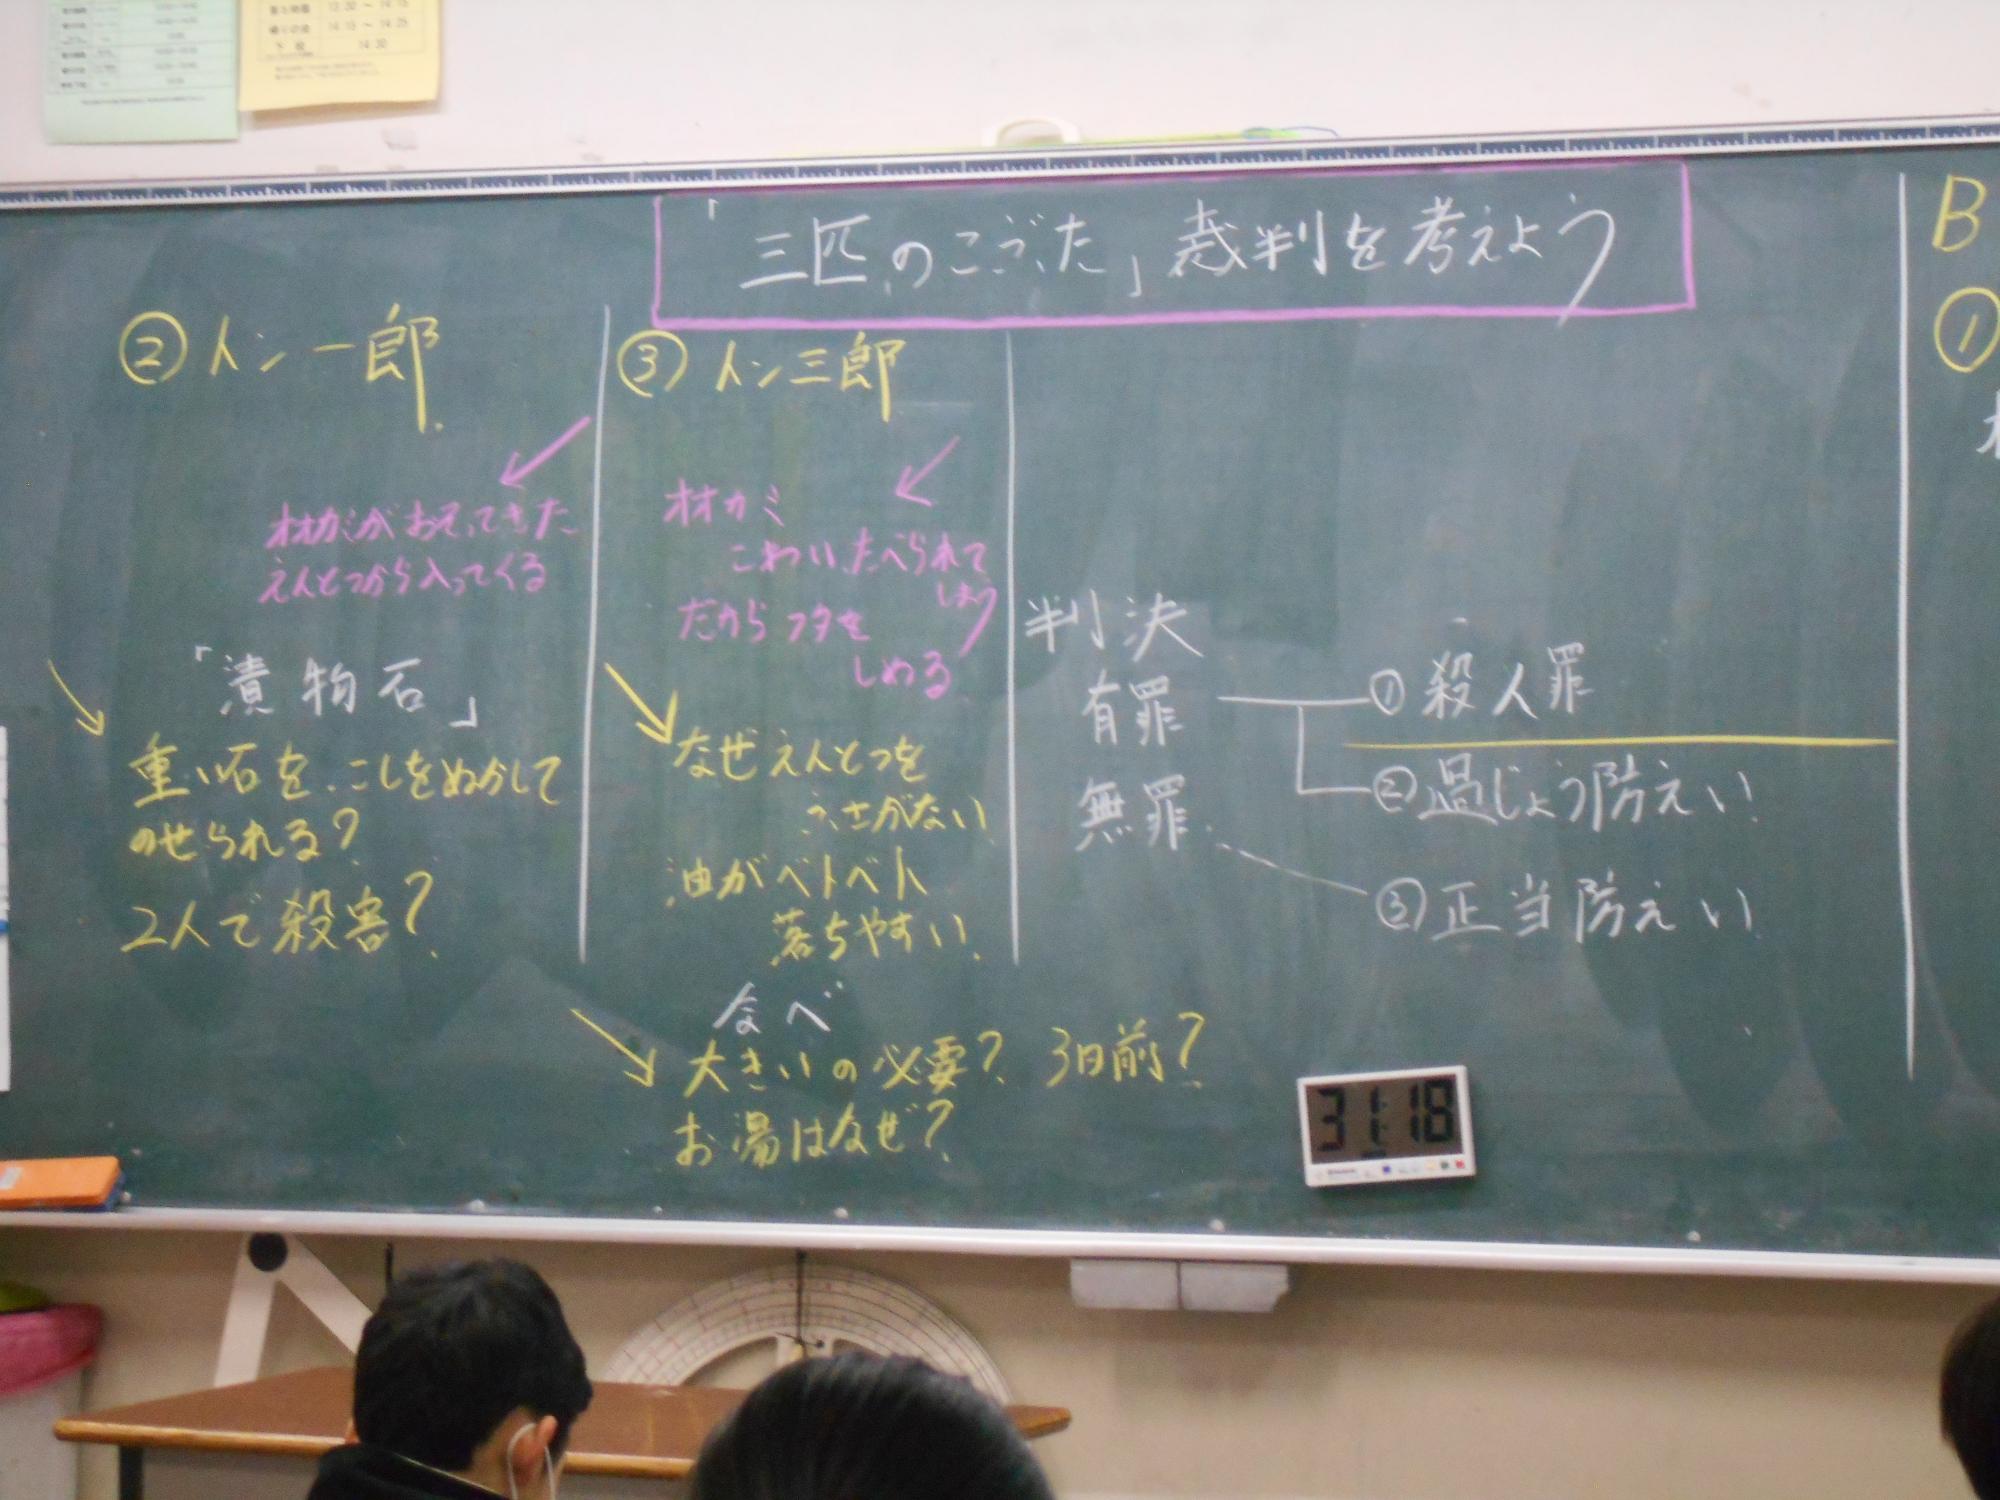 「三匹のこぶた」裁判を考えよう
② トン一郎
オオカミがおそってきた
えんとつから入ってくる
「漬物石」
重い石を、こしをぬかして
のせられる?
2人で殺害?
③ トン三郎
オオカミ
こわい、たべられて
しまう
だからフタを
しめる
なぜえんとつを
ふさがない
油がベトベト
落ちやすい
なべ
大きいの必要? 3日前?
お湯はなぜ?
判決
有罪
無罪
① 殺人罪
② 過じょう防えい
③ 正当防えい
31:18
B
①
14:15〜14:25
下校 14:30